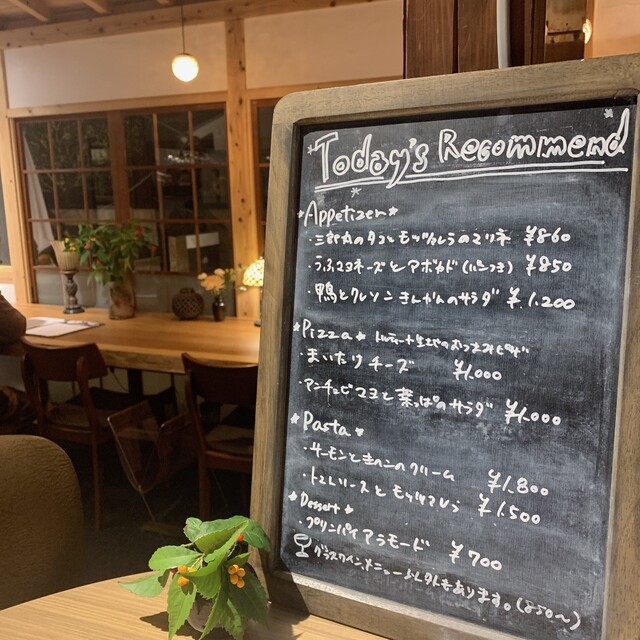 Today's Recommend
Appetizer
・三郎丸のタコとモッツァレラのマリネ ¥860
チーズとアボカド(パンつき) ¥850
・鴨とクレソンきんかんのサラダ ¥1.200
Pizza トルティーヤ生地のおつまみピザ
・まいたけチーズ ¥1.000
・アンチョビマヨと葉っぱのサラダ ¥1.000
Pasta
・サーモンときのこのクリーム ¥1.800
・トマトソースとモッツァレラ ¥1.500
Dessert
・プリンパイアラモード ¥700
グラスワインメニュー以外もあります。(850~)